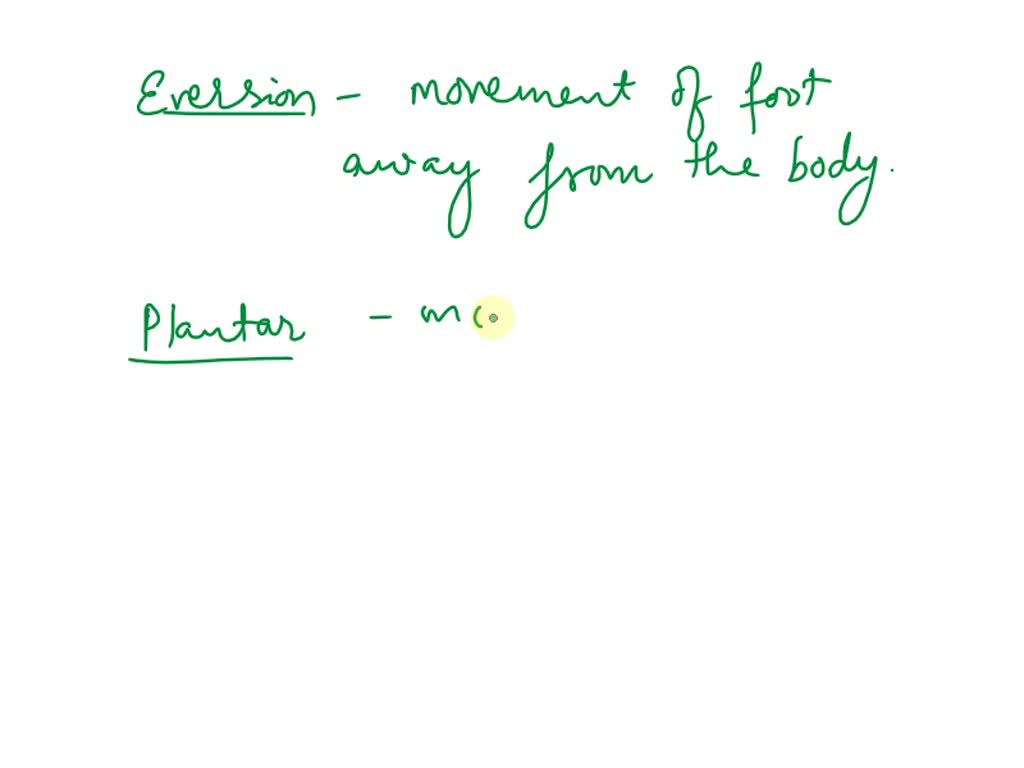 Eversion - movement of foot
away from the body.
Plantar - mo